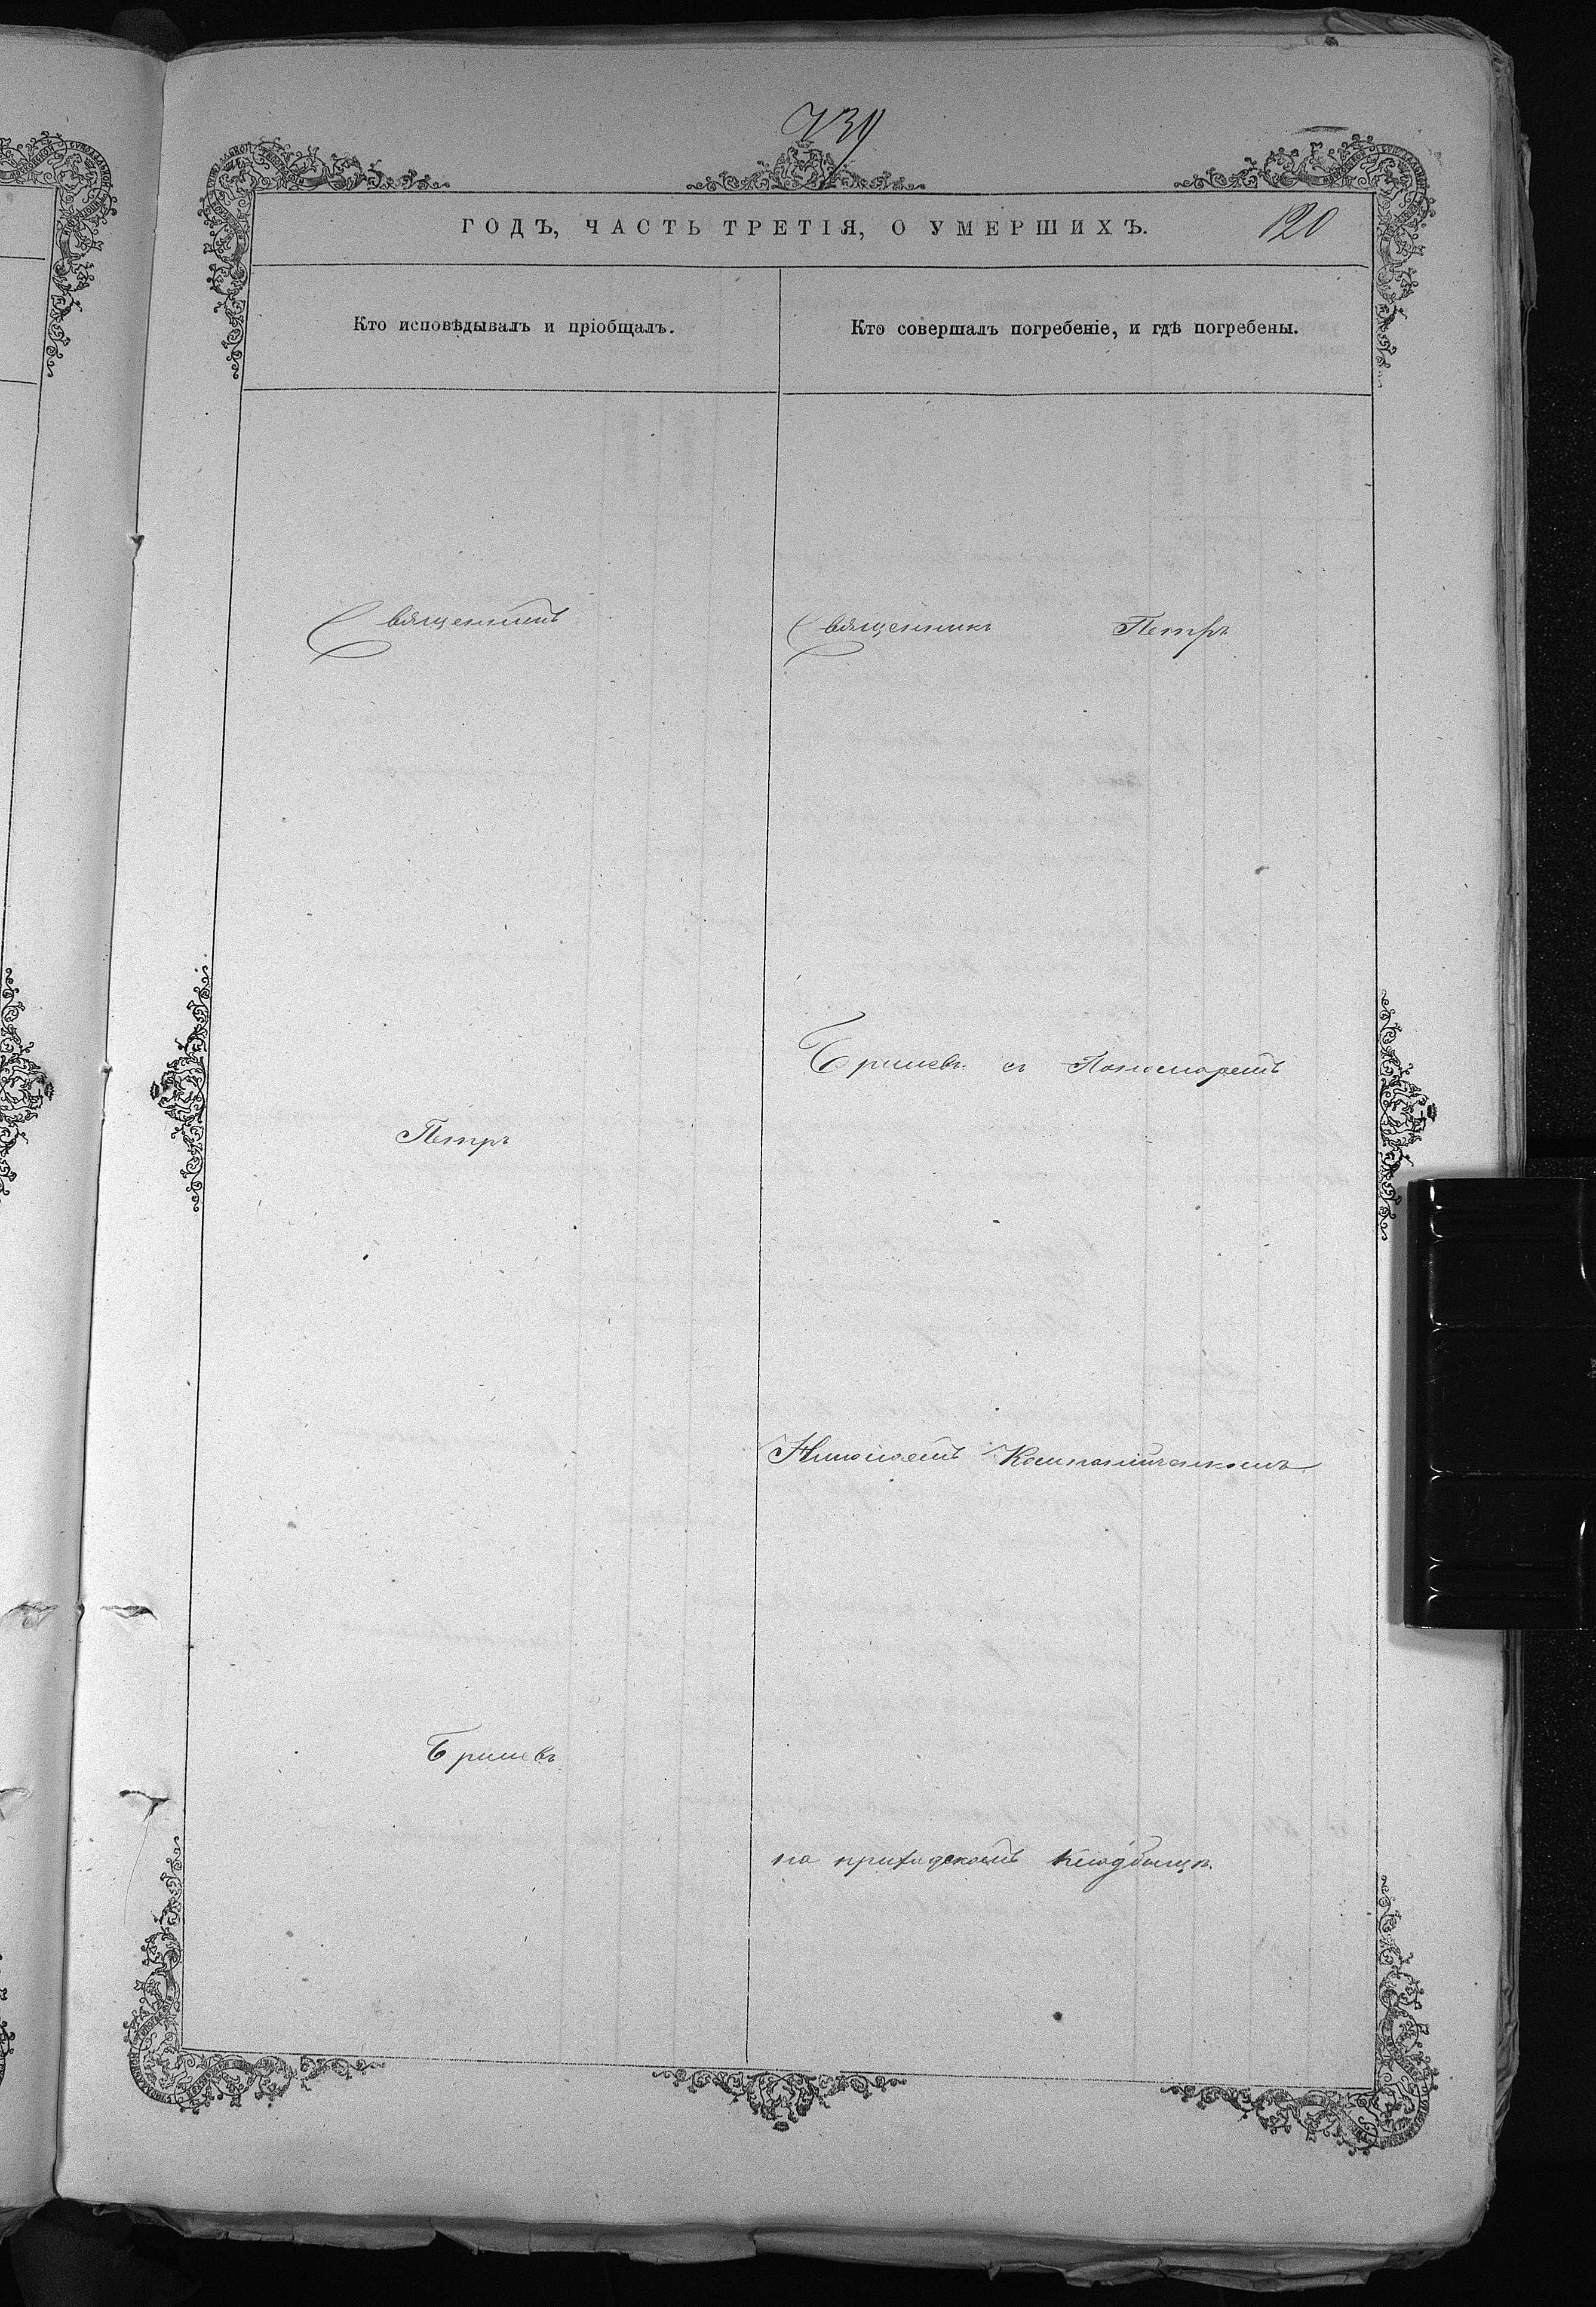 739
ГОДЪ, ЧАСТЬ ТРЕТІЯ, О УМЕРШИХЪ.
120
Кто исповѣдывалъ и пріобщалъ.
Кто совершалъ погребеніе, и гдѣ погребены.
Священникъ
Петръ
Еримевъ
Священникъ Петръ
Еримевъ съ Пономаремъ
Николаемъ Компанійченкомъ
на приходскомъ кладбищѣ.